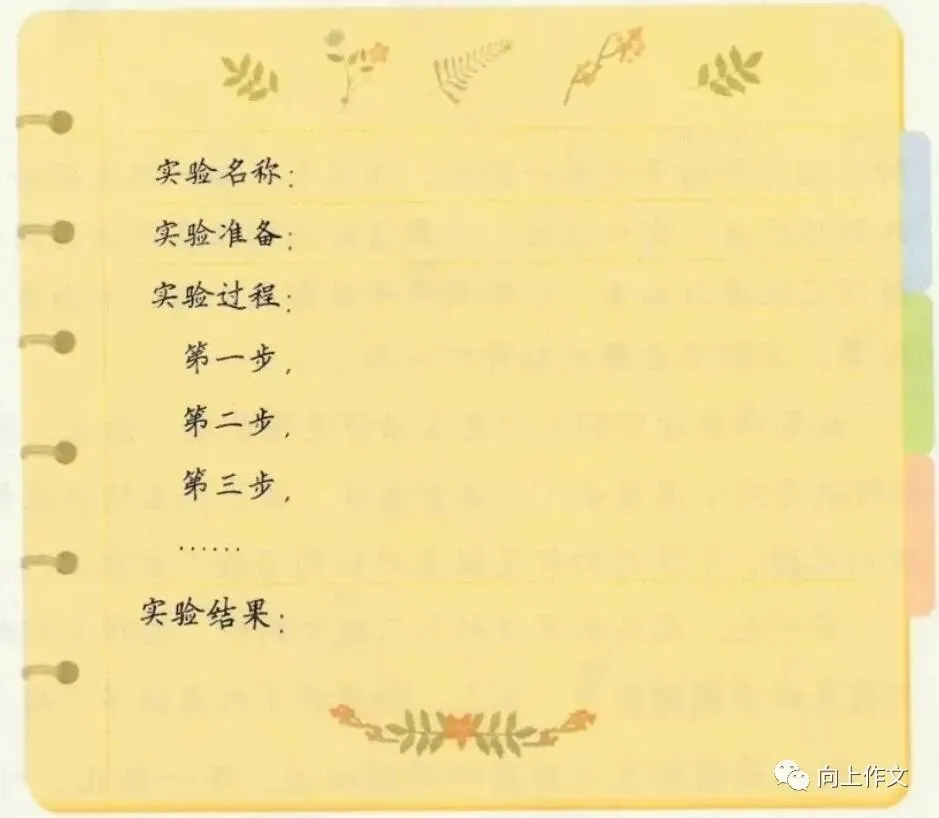 实验名称:
实验准备:
实验过程:
第一步,
第二步,
第三步,
……
实验结果:
向上作文